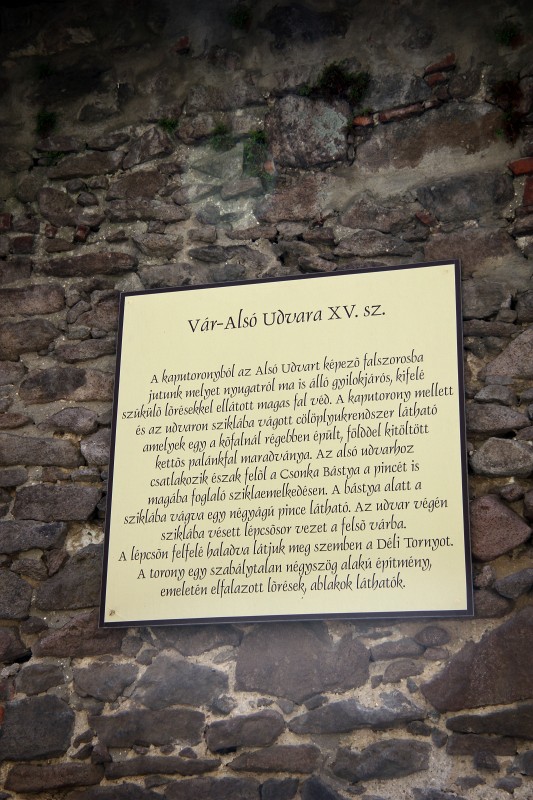 Vár-Alsó Udvara XV. sz.
A kaputoronyból az Alsó Udvart képező falszorosba
jutunk melyet nyugatról ma is álló gyilokjárós, kifelé
szűkülő lőrésekkel ellátott magas fal véd. A kaputorony mellett
és az udvaron sziklába vágott cölöplyukrendszer látható
amelyek egy a kőfalnál régebben épült, földdel kitöltött
kettős palánkfal maradványa. Az alsó udvarhoz
csatlakozik észak felöl a Csonka Bástya a pincét is
magába foglaló sziklaemelkedésen. A bástya alatt a
sziklába vágva egy négyágú pince látható. Az udvar végén
sziklába vésett lépcsősor vezet a felső várba.
A lépcsőn felfelé haladva látjuk meg szemben a Déli Tornyot.
A torony egy szabálytalan négyszög alakú építmény,
emeletén elfalazott lőrések, ablakok láthatók.